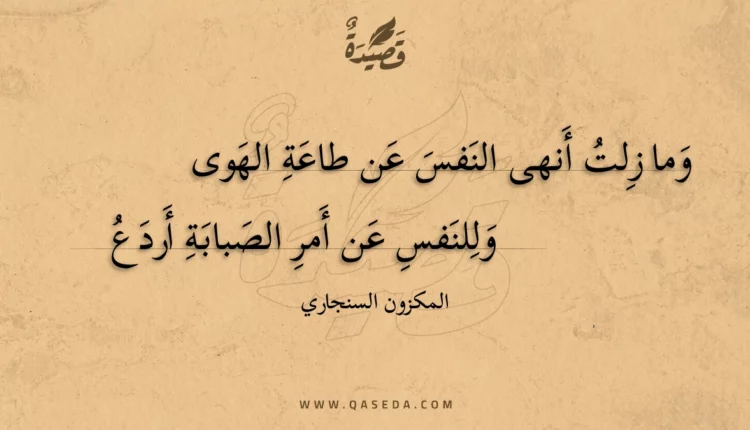 قَصِيْدَةٌ
وَما زِلتُ أَنهى النَفسَ عَن طاعَةِ الهَوى
وَلِلنَفسِ عَن أَمرِ الصَبابَةِ أَردَعُ
المكزون السنجاري
WWW.QASEDA.COM